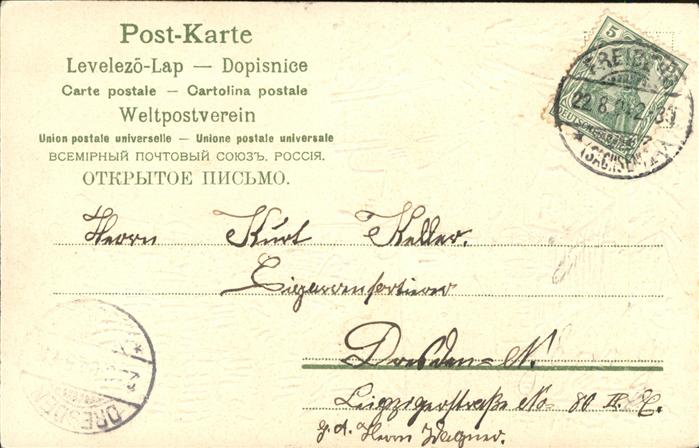 Post-Karte
Levelező-Lap — Dopisnice
Carte postale — Cartolina postale
Weltpostverein
Union postale universelle — Unione postale universale
ВСЕМІРНЫЙ ПОЧТОВЫЙ СОЮЗЪ. РОССІЯ.
ОТКРЫТОЕ ПИСЬМО.
5
FREIBERG
22.8.
(SACHSEN)
DEUTSCHES REICH
Herrn Kurt Keller.
Cigarrensortierer
Dresden-N.
Leipzigerstraße No 80 II. E.
p. A. Herrn Wagner.
DRESDEN